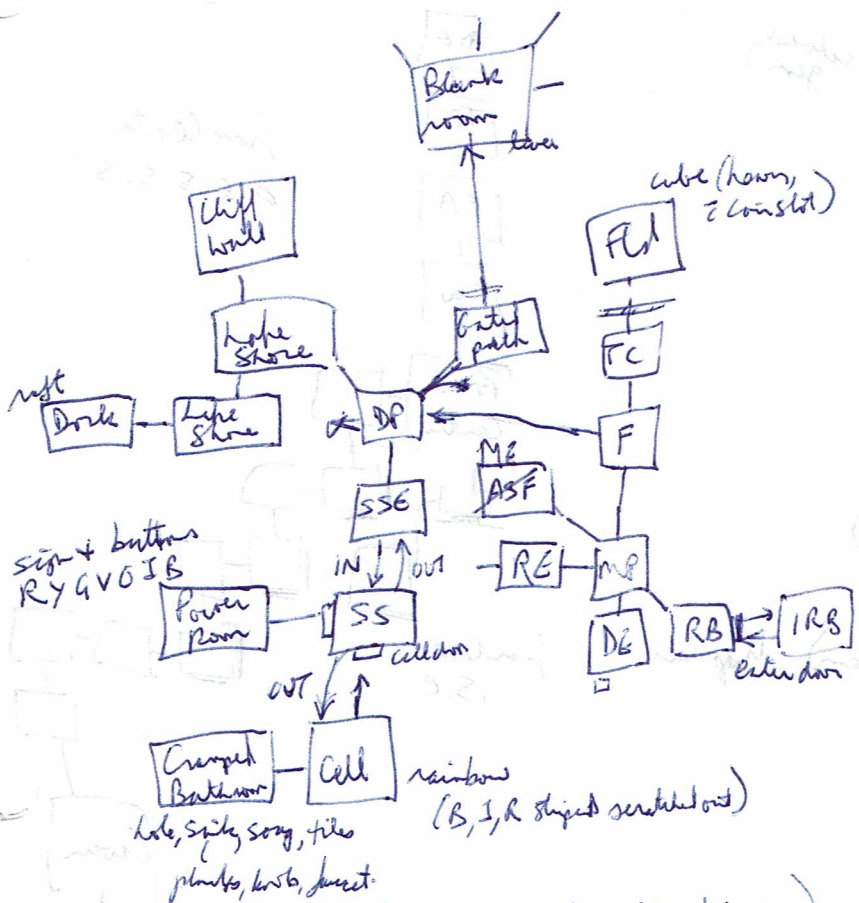 Blank
room
lever
cube (
coin slot)
Cliff
Wall
Fld
Lake
Shore
Gated
path
TC
raft
Dock
Lake
Shore
DP
F
ME
ASF
SSE
sign + buttons
R Y G V O I B
IN
OUT
RE
MP
Power
Room
SS
DE
RB
IRB
cell door
enter door
OUT
Cramped
Bathroom
Cell
rainbow
(B, I, R stripes scratched out)
hole, soap, tiles
knob, faucet.